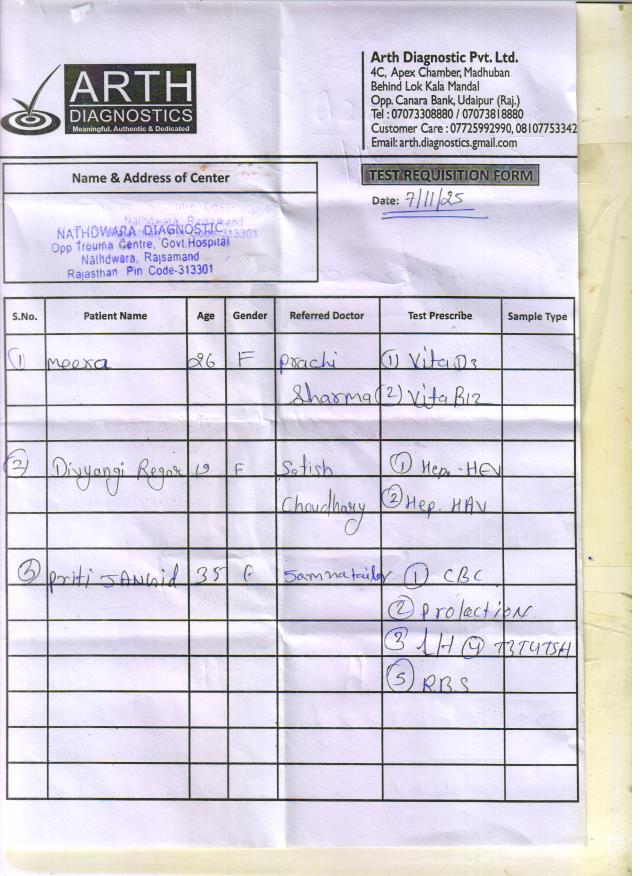 ARTH
DIAGNOSTICS
Meaningful, Authentic & Dedicated
Arth Diagnostic Pvt. Ltd.
4C, Apex Chamber, Madhuban
Behind Lok Kala Mandal
Opp. Canara Bank, Udaipur (Raj.)
Tel : 07073308880 / 07073818880
Customer Care : 07725992990, 08107753342
Email: arth.diagnostics.gmail.com
Name & Address of Center
TEST REQUISITION FORM
Date: 7/11/25
Nathdwara, Rajsamand
NATHDWARA DIAGNOSTIC
Opp Trauma Centre, Govt. Hospital
Nathdwara, Rajsamand
Rajasthan Pin Code-313301
S.No. Patient Name Age Gender Referred Doctor Test Prescribe Sample Type
(1) meera 26 F Prachi (1) Vita D3
Sharma (2) Vita B12
(2) Divyangi Regar 19 F Satish (1) Hep. -HEV
Choudhary (2) Hep. HAV
(3) Priti JANGid 35 (1) CBC
(2) Prolection
(3) LH (4) T3T4TSH
(5) RBS